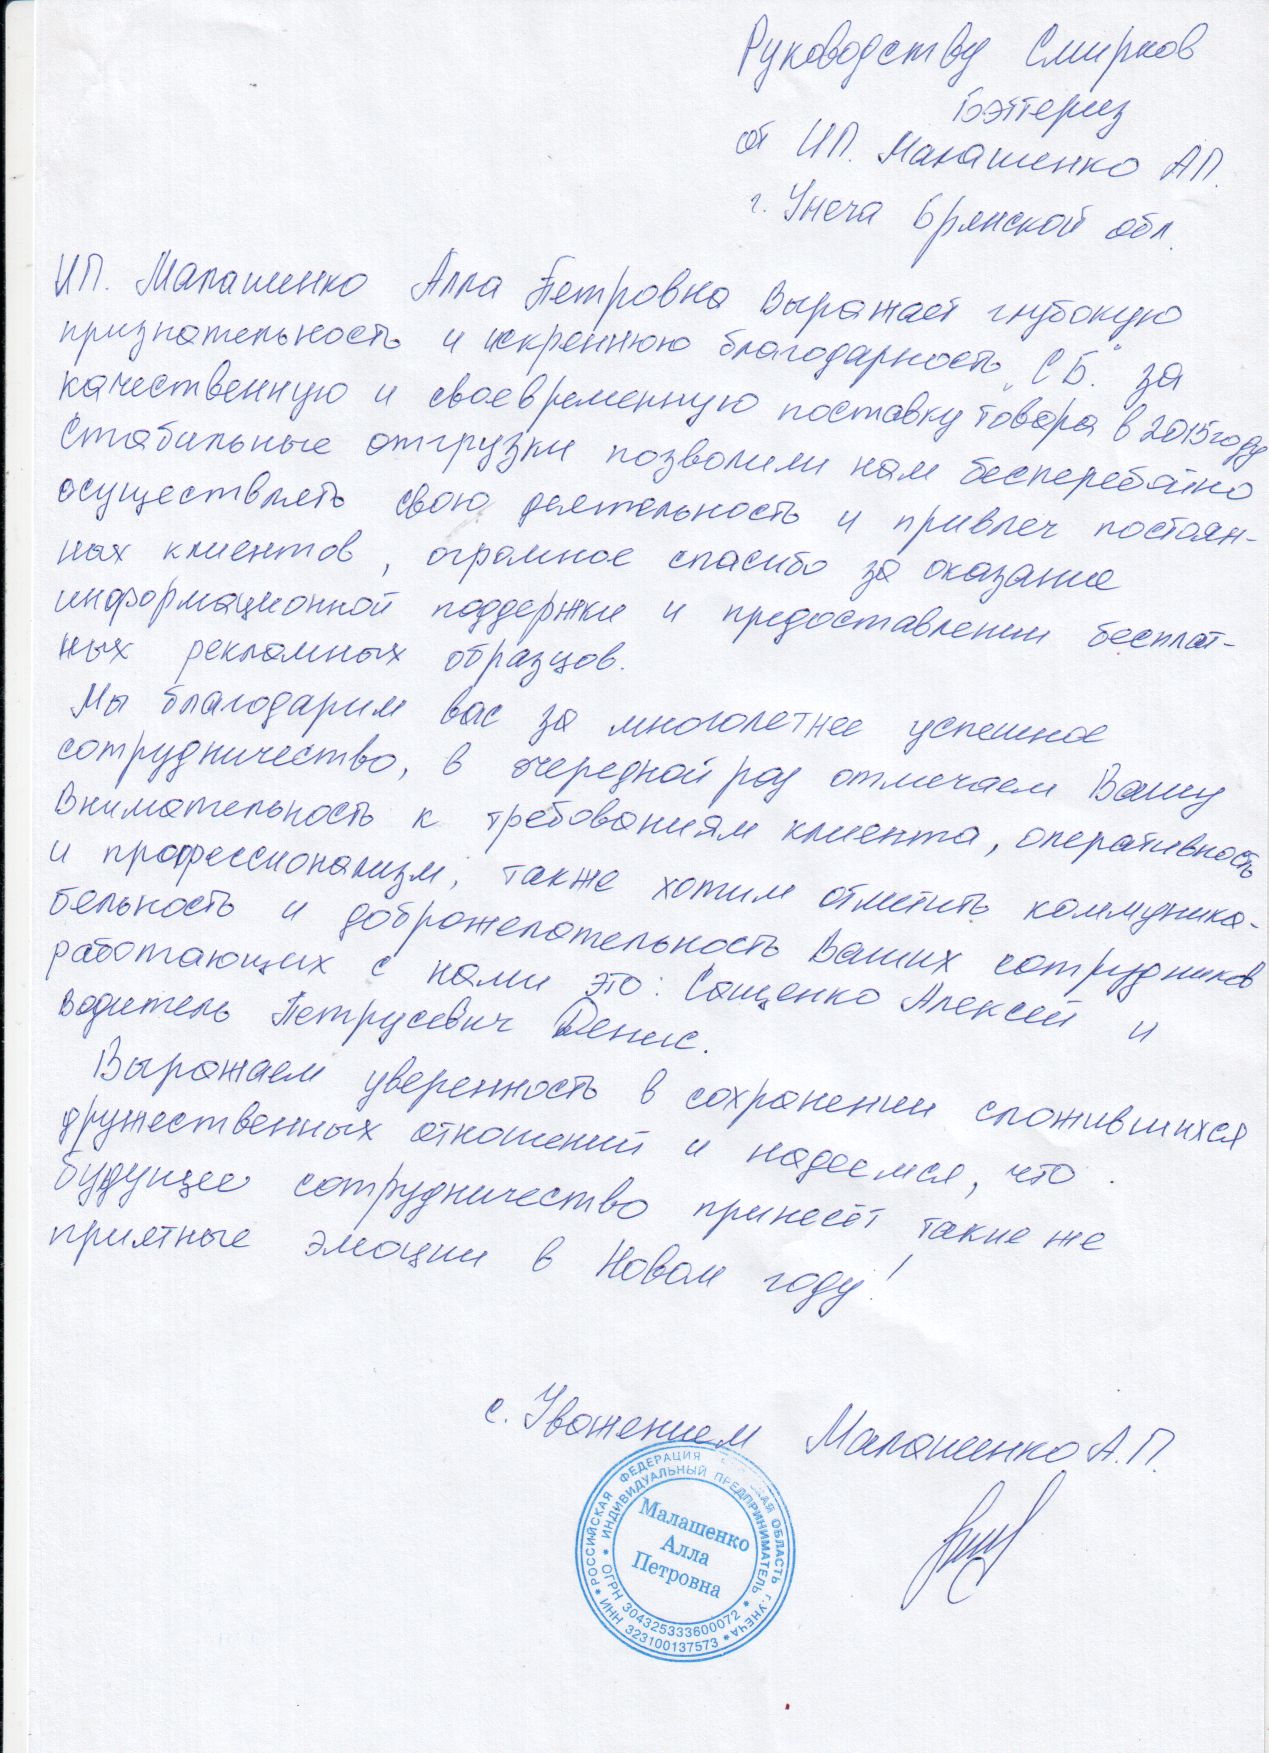 Руководству Смирнов
Бэттериз
от ИП. Малашенко А.П.
г. Унеча Брянской обл.
ИП. Малашенко Алла Петровна выражает глубокую
признательность и искреннюю благодарность „СБ." за
качественную и своевременную поставку товара в 2015году
Стабильные отгрузки позволили нам бесперебойно
осуществлять свою деятельность и привлеч постоян-
ных клиентов, огромное спасибо за оказание
информационной поддержки и предоставлении бесплат-
ных рекламных образцов.
Мы благодарим вас за многолетнее успешное
сотрудничество, в очередной раз отмечаем Вашу
внимательность к требованиям клиента, оперативность
и профессионализм, также хотим отметить коммуника-
бельность и доброжелательность Ваших сотрудников
работающих с нами это: Сащенко Алексей и
водитель Петрусевич Денис.
Выражаем уверенность в сохранении сложившихся
дружественных отношений и надеемся, что
будущее сотрудничество принесёт такие же
приятные эмоции в Новом году!
с. Уважением Малашенко А.П.
РОССИЙСКАЯ ФЕДЕРАЦИЯ ОБЛАСТЬ г. УНЕЧА
ИНДИВИДУАЛЬНЫЙ ПРЕДПРИНИМАТЕЛЬ
Малашенко
Алла
Петровна
* ОГРН 304325333600072 *
* ИНН 323100137573 *